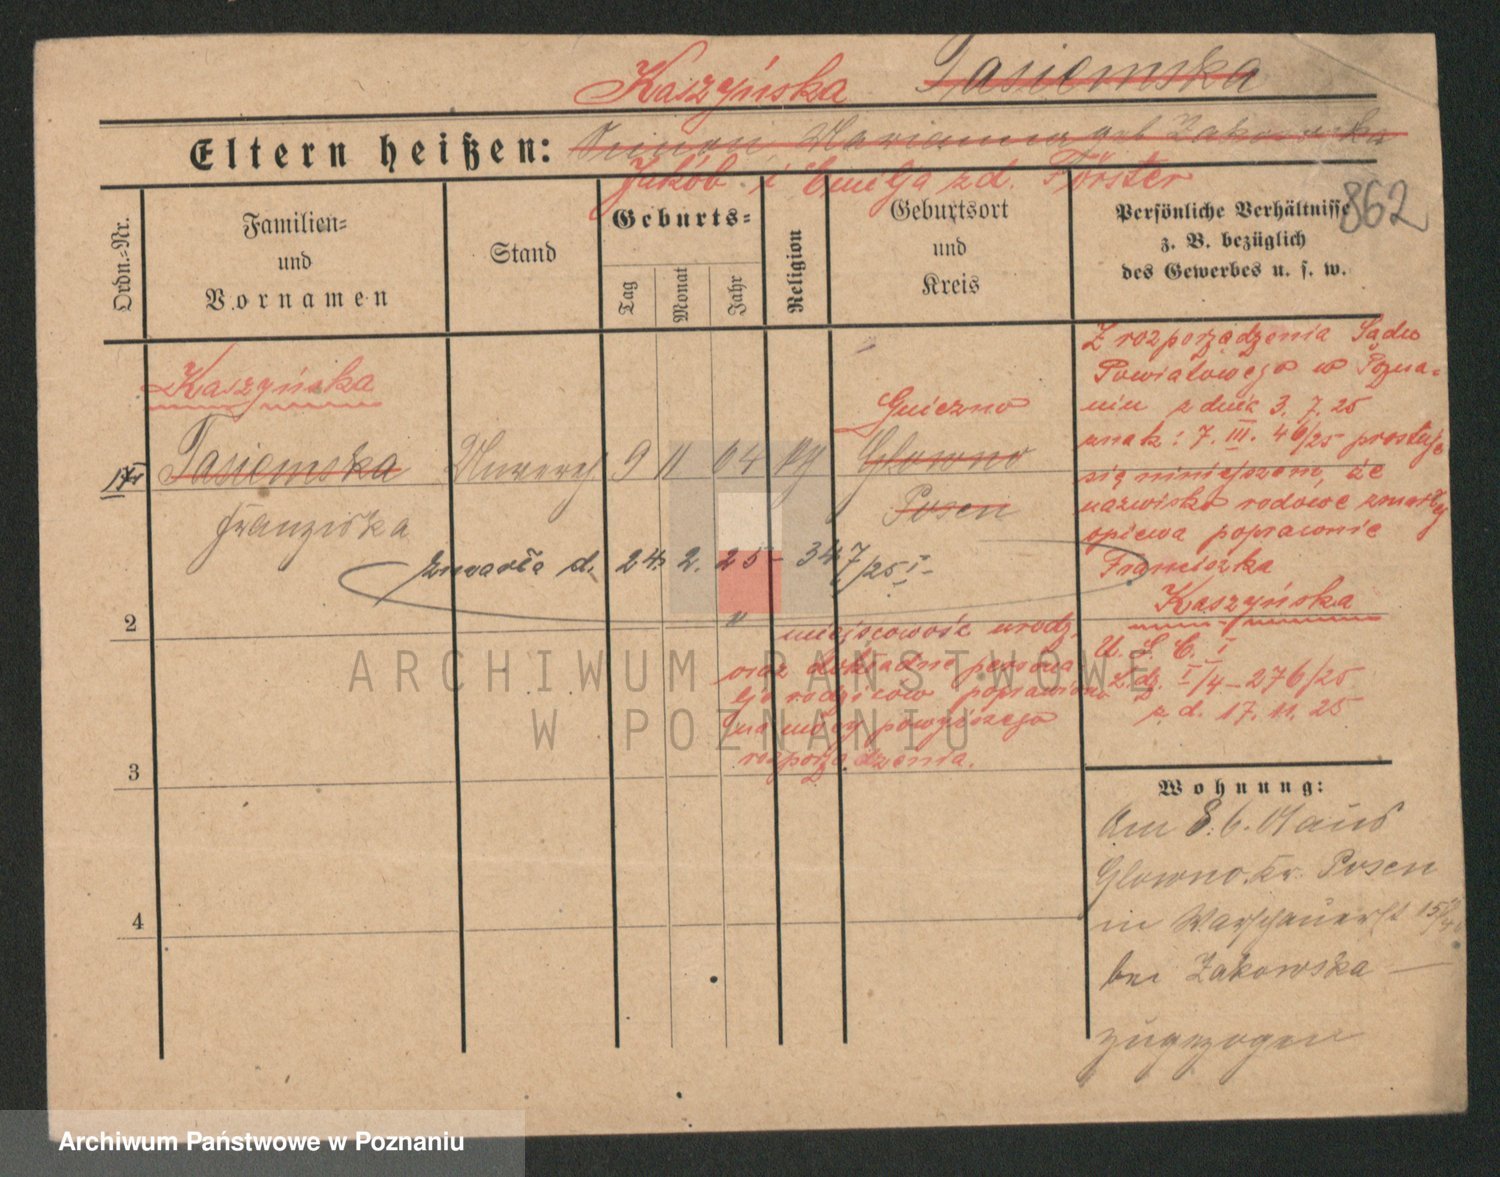 Kaszyńska Tasiemska
Eltern heißen: Simon Marianna geb Zakowska
Jakób i Emilja zd. Förster
862
Ordn.-Nr.
Familien=
und
Vornamen
Stand
Geburts=
Tag
Monat
Jahr
Religion
Geburtsort
und
Kreis
Persönliche Verhältnisse
z. B. bezüglich
des Gewerbes u. s. w.
Kaszyńska
Tasiemska
Franziska
9 11 04
Gniezno
Glowno
Posen
Zmarła d. 24. 2. 25 - 347/25 I-
Z rozporządzenia Sądu
Powiatowego w Pozna-
niu z dnia 3. 7. 25
znak: 7. III. 46/25 prostuje
się niniejszem, że
nazwisko rodowe zmarłej
opiewa poprawnie
Franciszka
Kaszyńska
U. S. C. I
L. dz. I/4 - 276/25
z. d. 17. 11. 25
miejscowość urodz.
oraz dokładne persona
lja rodziców poprawiono
na mocy powyższego
rozporządzenia.
2
3
4
Wohnung:
Am 8. 6. 01 aus
Glowno Kr. Posen
in Warschauerst 15
bei Zakowska —
zugezogen
ARCHIWUM PAŃSTWOWE
W POZNANIU
Archiwum Państwowe w Poznaniu